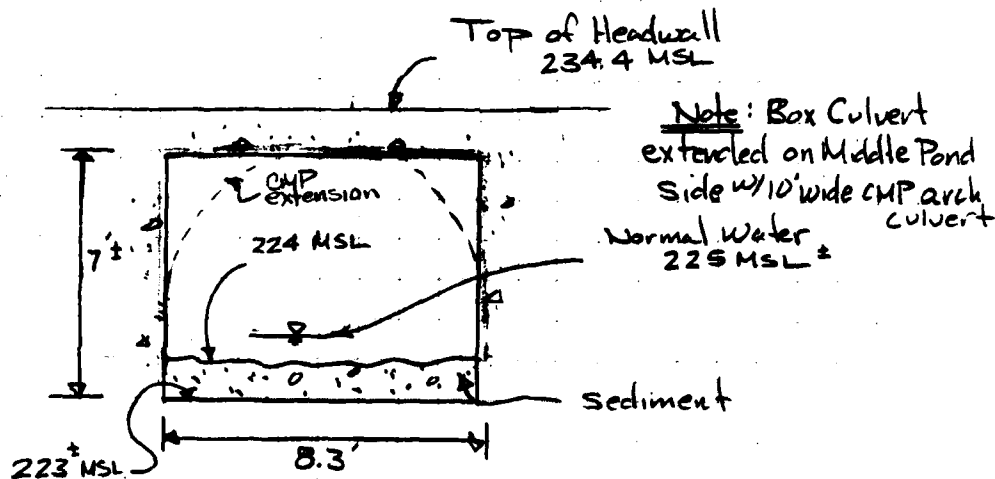 Top of Headwall
234.4 MSL
Note: Box Culvert
extended on Middle Pond
Side w/10' wide CMP arch
culvert
CMP
extension
224 MSL
Normal Water
225 MSL ±
7'±
Sediment
8.3'
223± MSL